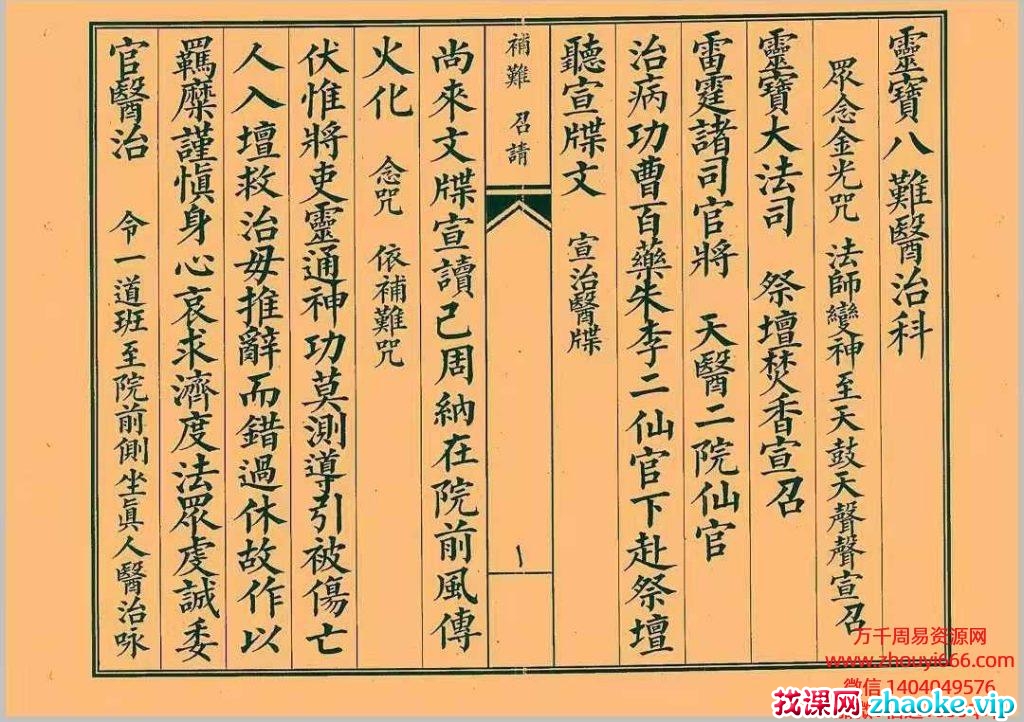 靈寶八難醫治科
眾念金光咒 法師變神至天鼓天聲聲宣召
靈寶大法司 祭壇焚香宣召
雷霆諸司官將 天醫二院仙官
治病功曹百藥朱李二仙官下赴祭壇
聽宣牒文 宣治醫牒
補難 召請
尚來文牒宣讀已周納在院前風傳
火化 念咒 依補難咒
伏惟將吏靈通神功莫測導引被傷亡
人入壇救治毋推辭而錯過休故作以
羈縻謹慎身心哀求濟度法眾虔誠委
官醫治 令一道班至院前側坐眞人醫治咏
万千周易资源网
www.zhouyi666.com
微信 1404049576
找课网 zhaoke.vip